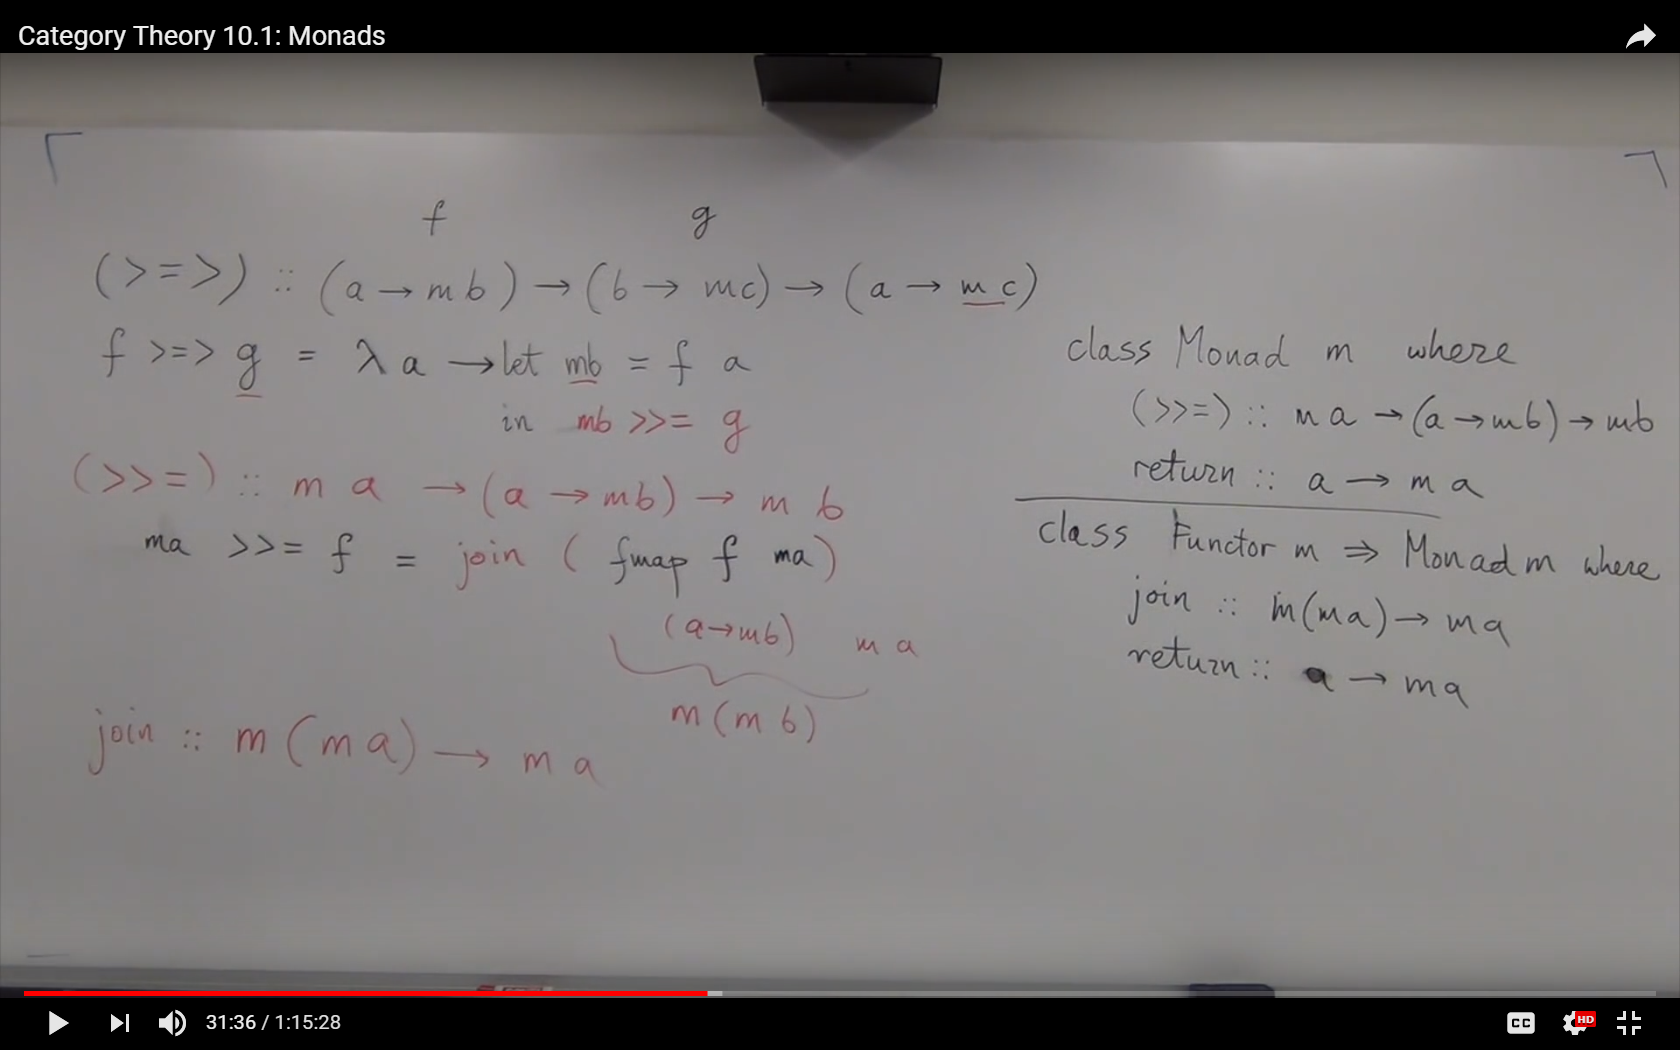 Category Theory 10.1: Monads
f g
(>=>) :: (a → m b) → (b → mc) → (a → m c)
f >=> g = λ a → let mb = f a
in mb >>= g
(>>=) :: m a → (a → mb) → m b
ma >>= f = join ( fmap f ma)
(a→mb) m a
m (m b)
join :: m (m a) → m a
class Monad m where
(>>=) :: m a → (a → mb) → mb
return :: a → m a
class Functor m ⇒ Monad m where
join :: m(ma) → ma
return :: a → ma
31:36 / 1:15:28
CC
HD